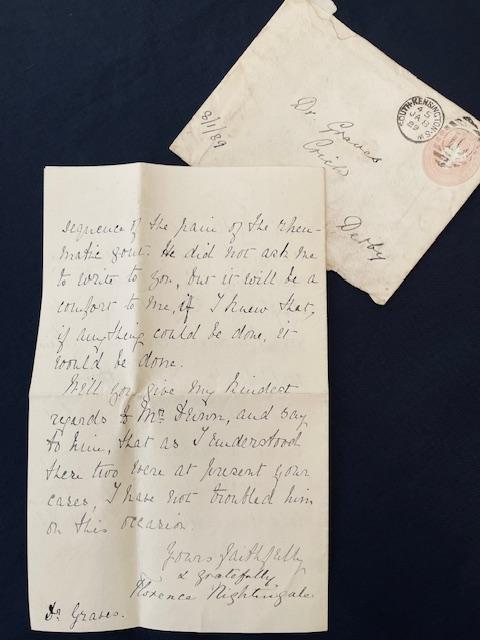 8/1/89
Dr. Graves
Crich
Derby
SOUTH-KENSINGTON.S.W.
4 5
JA 8
89
sequence of the pain of the rheu-
matic gout. He did not ask me
to write to you, but it will be a
comfort to me, if I knew that,
if anything could be done, it
would be done.
Will you give my kindest
regards to Mr. Dunn, and say
to him, that as I understood
these two were at present your
cases, I have not troubled him
on this occasion.
Yours faithfully
& gratefully
Florence Nightingale
Dr. Graves.